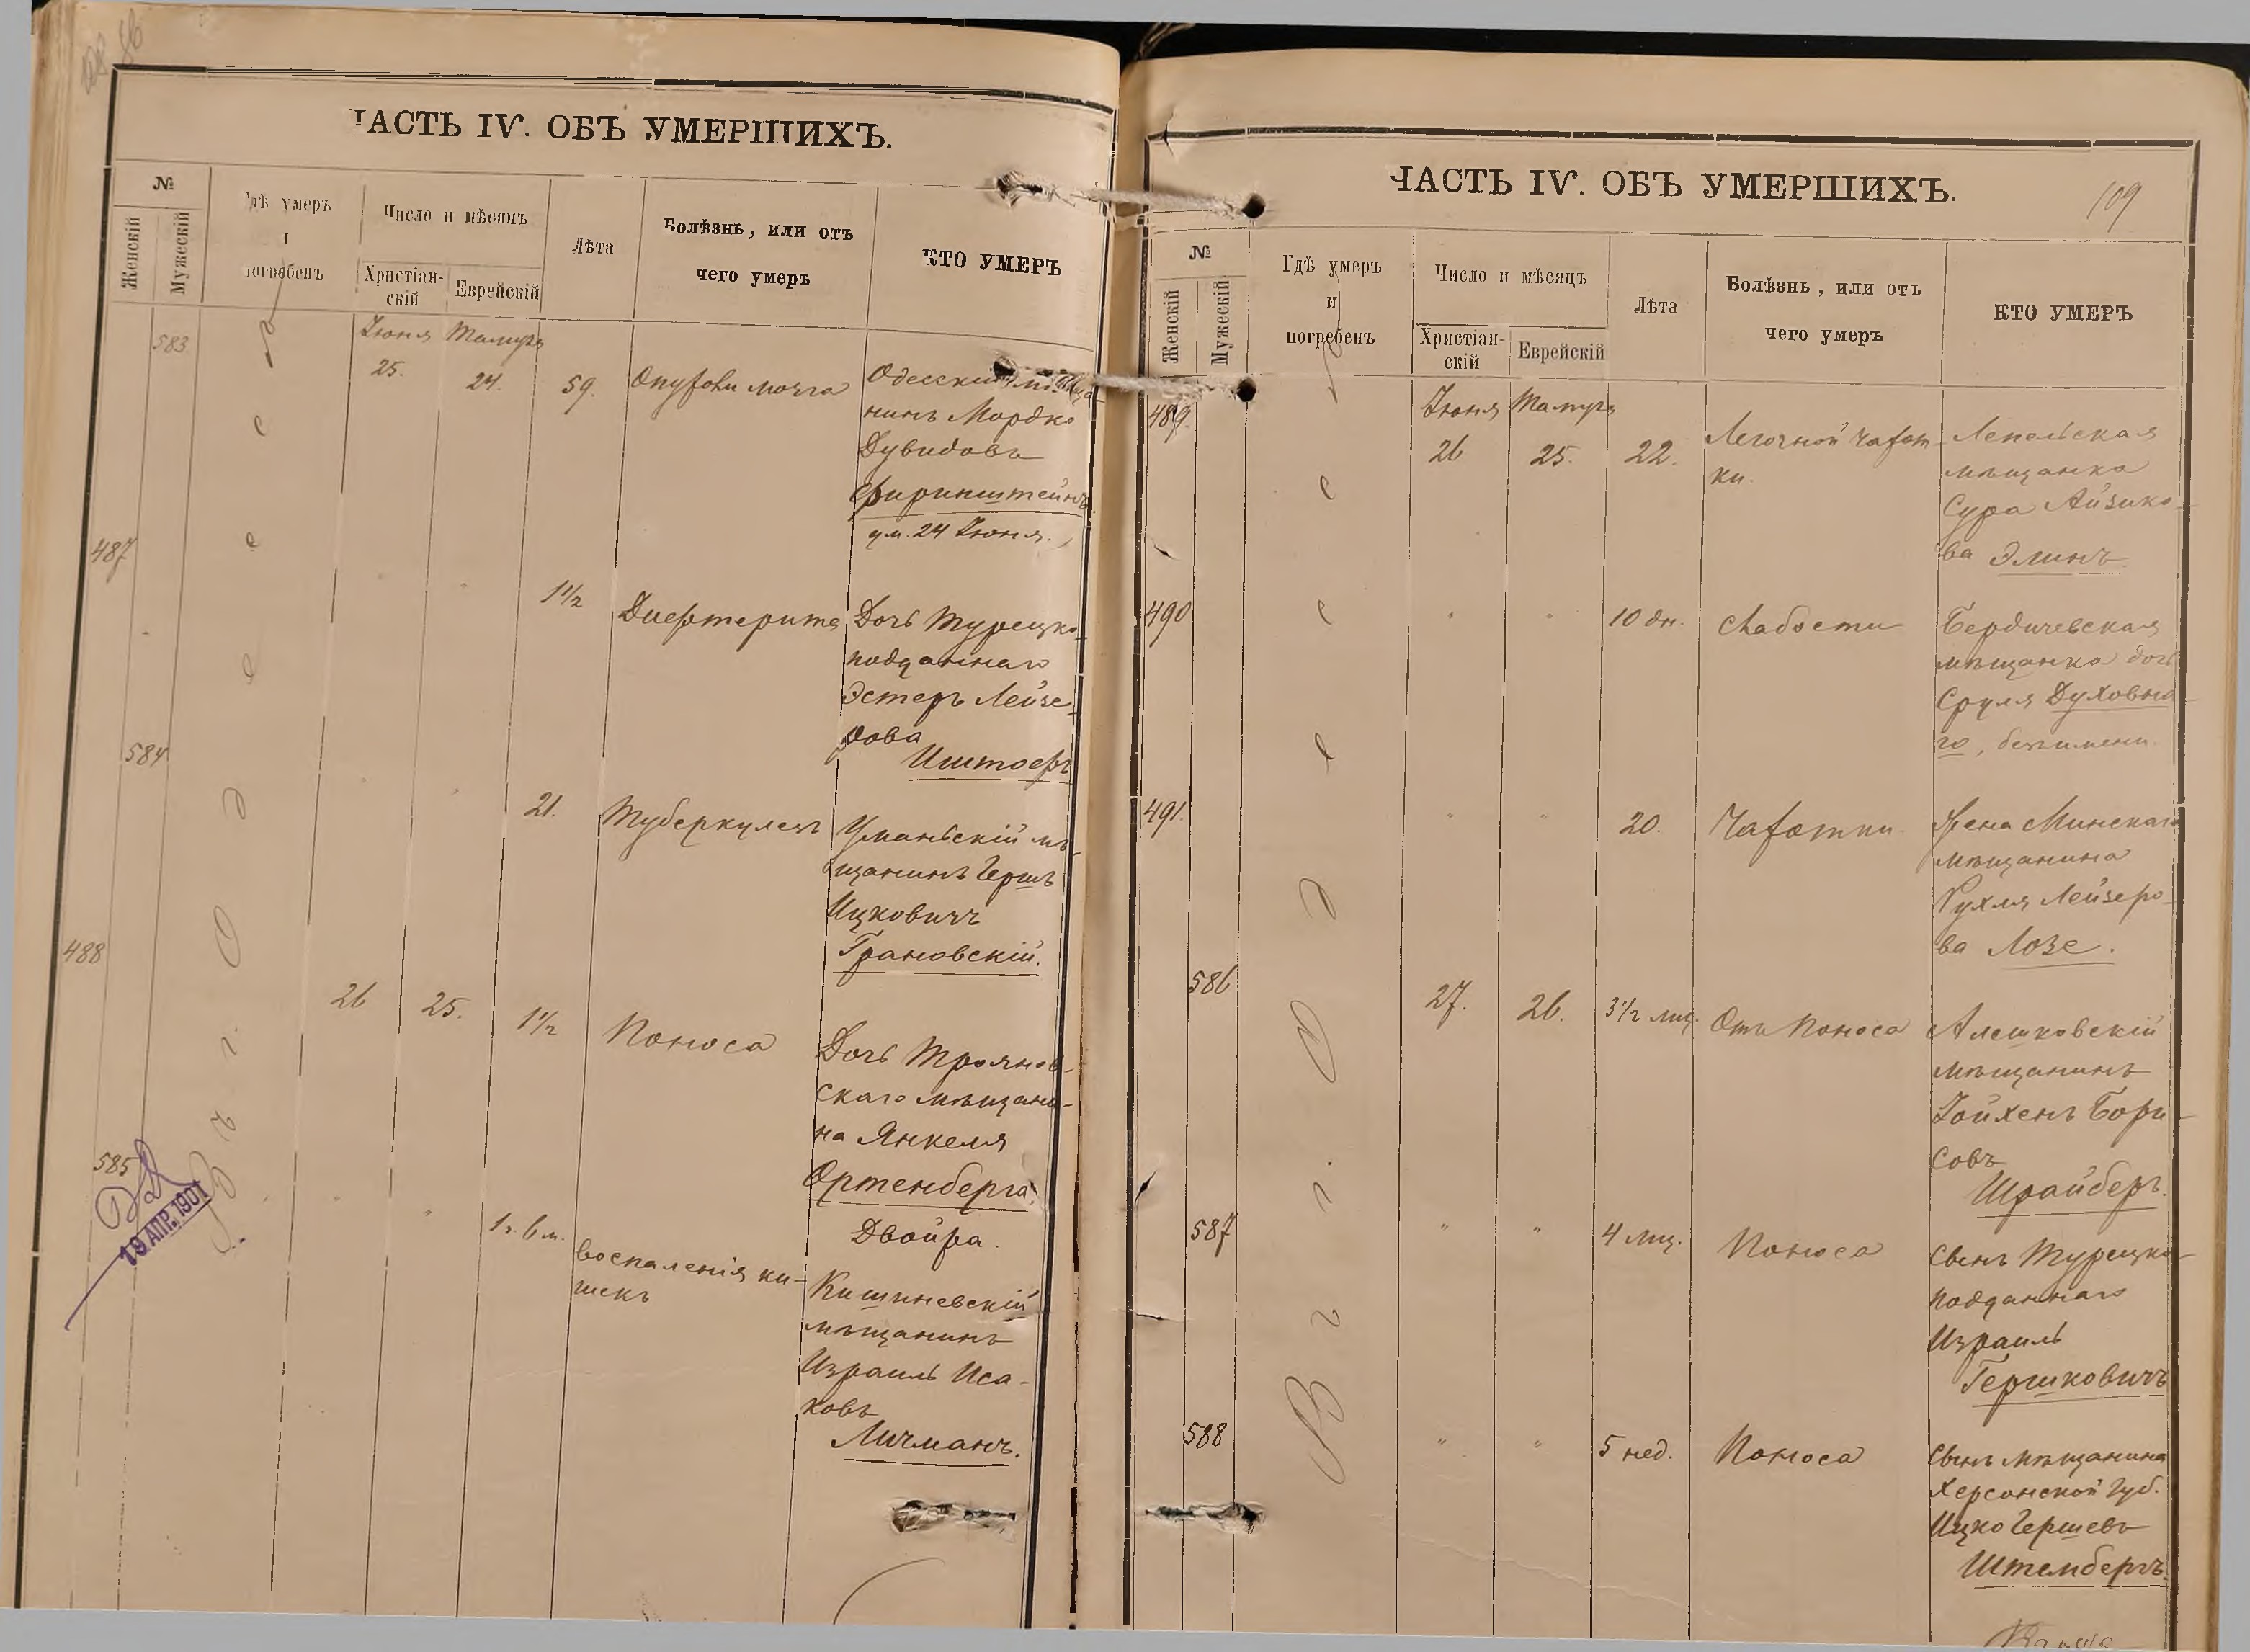 ЧАСТЬ IV. ОБЪ УМЕРШИХЪ.
№
Женскій
Мужескій
Гдѣ умеръ
и
погребенъ
Число и мѣсяцъ
Христіан-
скій
Еврейскій
Лѣта
Болѣзнь, или отъ
чего умеръ
КТО УМЕРЪ
Въ г. Одессѣ
583
Іюня Тамуза
25. 24. 59. Опухоли мозга
Одесскій мѣща-
нинъ Мордко
Дувидовъ
Фиринштейнъ
ум. 24 Іюня.
487
" " 1 1/2 Дифтерита
Дочь Турецко-
подданнаго
Эстеръ Лейзе-
рова
Иштоефъ
584
" " 21. Туберкулезъ
Уманьскій мѣ-
щанинъ Гершъ
Ицковичъ
Грановскій.
488
26 25. 1 1/2 Поноса
Дочь Троянов-
скаго мѣщани-
на Янкеля
Ортенберга,
Двойра.
585
" " 1 г. 6 м. воспаленія ки-
шекъ
Кишиневскій
мѣщанинъ
Израиль Иса-
ковъ
Личманъ.
19 АПР. 1901
ЧАСТЬ IV. ОБЪ УМЕРШИХЪ.
109
№
Женскій
Мужескій
Гдѣ умеръ
и
погребенъ
Число и мѣсяцъ
Христіан-
скій
Еврейскій
Лѣта
Болѣзнь, или отъ
чего умеръ
КТО УМЕРЪ
Въ г. Одессѣ
489.
Іюня Тамуза
26 25. 22. Легочной чахот-
ки.
Лепельская
мѣщанка
Сура Айзико-
ва Элинъ
490
" " 10 дн. Слабости
Бердичевская
мѣщанка дочь
Сруля Духовна-
го, безъ имени.
491.
" " 20. Чахотки
Жена Минскаго
мѣщанина
Рухля Лейзеро-
ва Лозе.
586
27. 26. 3 1/2 мц. Отъ поноса
Алешковскій
мѣщанинъ
Іойхенъ Бори-
совъ
Шрайберъ.
587
" " 4 мц. Поноса
Сынъ Турецко-
подданнаго
Израиль
Гершковичъ
588
" " 5 нед. Поноса
Сынъ мѣщанина
Херсонской губ.
Ицко Гершевъ
Штембергъ.